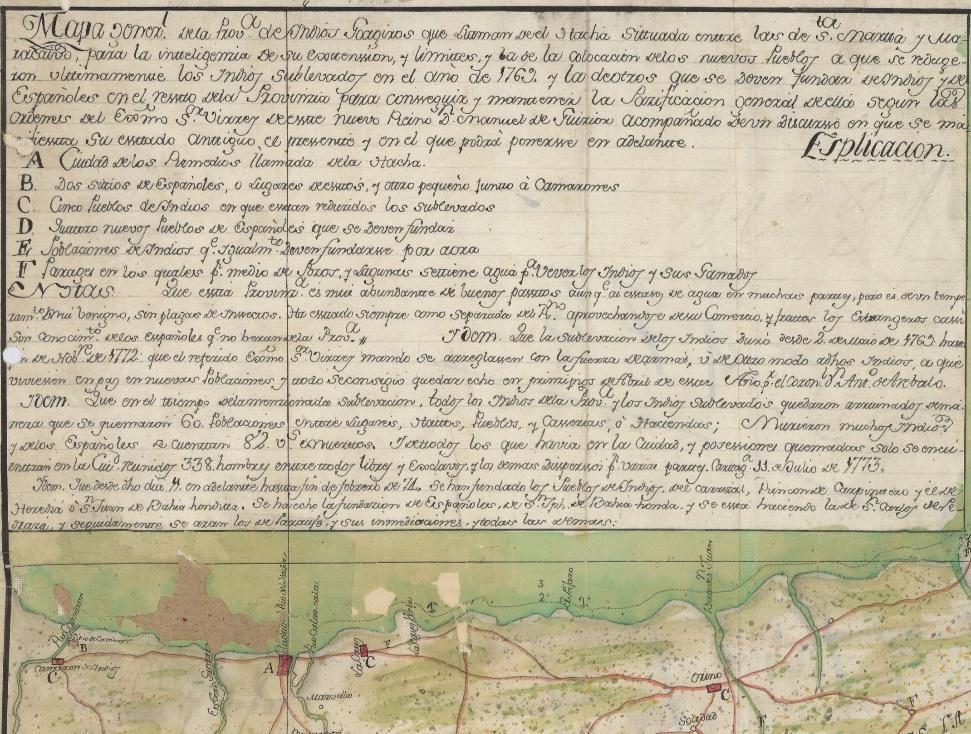 Mapa general. de la Prov.a de Indios Goagiros que llaman del Rio el Hacha Situada entre las de S.ta Marta y Ma-
racaivo, para la inteligencia de su extension, y limites, y la de la colocacion de los nuevos Pueblos a que se reduge-
ron ultimamente los Indios Sublevados en el año de 1769. y la de otros que se deven fundar de Indios y de
Españoles en el resto de la Provinzia para conseguir y mantener la Pacificacion general de ella segun las
Ordenes del Exmo S.or Virrey de este nuevo Reino D.n Manuel de Guirior acompañado de un discurso en que se ma
nifiesta Su estado antiguo el presente y en el que podrá ponerse en adelante. Esplicacion.
A Ciudad de los Remedios llamada de la Hacha.
B. Dos sitios de Españoles, o Lugares de estos, y otro pequeño junto à Camarones
C Cinco Pueblos de Indios en que estan reduzidos los sublevados
D Quatro nuevos Pueblos de Españoles que se deven fundar
E Poblaciones de Indios q.e Igualm.te deven fundarse por aora
F Parages en los quales p.r medio de Pozos, y Lagunas se tiene agua p.a Vever los Indios y sus Ganados
Notas. Que esta Provinz.a es mui abundante de buenos pastos aunq.e ai escasez de agua en muchas partes, pero es de un tempe-
ram.to mui venigno, sin plagas de insectos. Ha estado siempre como separada del R.no aprovechandose de su Comercio, y frutos los Estrangeros cassi
Sin conocim.to de los españoles q.e no heran de la Prov.a Idem. Que la sublevacion de los Indios Duró desde 2. de Maio de 1769. hasta
fin de Nob.re de 1772. que el referido Exmo S.or Virrey mando se arreglassen con la fuerza de armas, ù de otro modo à dhos Indios, a que
viviessen en paz en nuevas Poblaciones y todo se consiguio quedar echo en principios de Abril de este Año, p.r el Coron.l D.n Ant.o de Arebalo.
Idem. Que en el tiempo de la mencionada Sublevacion, todos los Indios de la Prov.a y los Indios Sublevados quedaron arruinados de ma-
nera que se quemaron 60. Poblaciones entre Lugares, Hattos, Pueblos, y Caserias, ò Haciendas; Murieron muchos Indios
y de los Españoles se cuentan 82. muertos. I de todos los que havia en la Ciudad, y posesiones quemadas solo se encu-
entran en la Ciu.d Reunidos 338. hombres entre todos libres y Esclavos, y los demas Dispersos p.r varias partes. Cartag.a 11 de Julio de 1773.
Idem. Que desde dho dia 11. en adelante, hasta fin de febrero de 74. Se han fundado los Pueblos de Indios, del carrizal, Rincon de Carpintero y el de
Heredia ò S.n Juan de Bahia hondita. Se ha echo la fundacion de Españoles, de S.n Jph. de Bahia honda. y se está haciendo la de S.n Carlos de Pe-
draza, y seguidamente se aran los de Parauje, y sus inmediaciones, y todas las demas:
Rio Camaron
Sitio de Camarones
B
Camaron de Indios
C
A
Rio Calancala
C
F
1
3
2
1
Marvella
Orino
C
Soledad
F
F